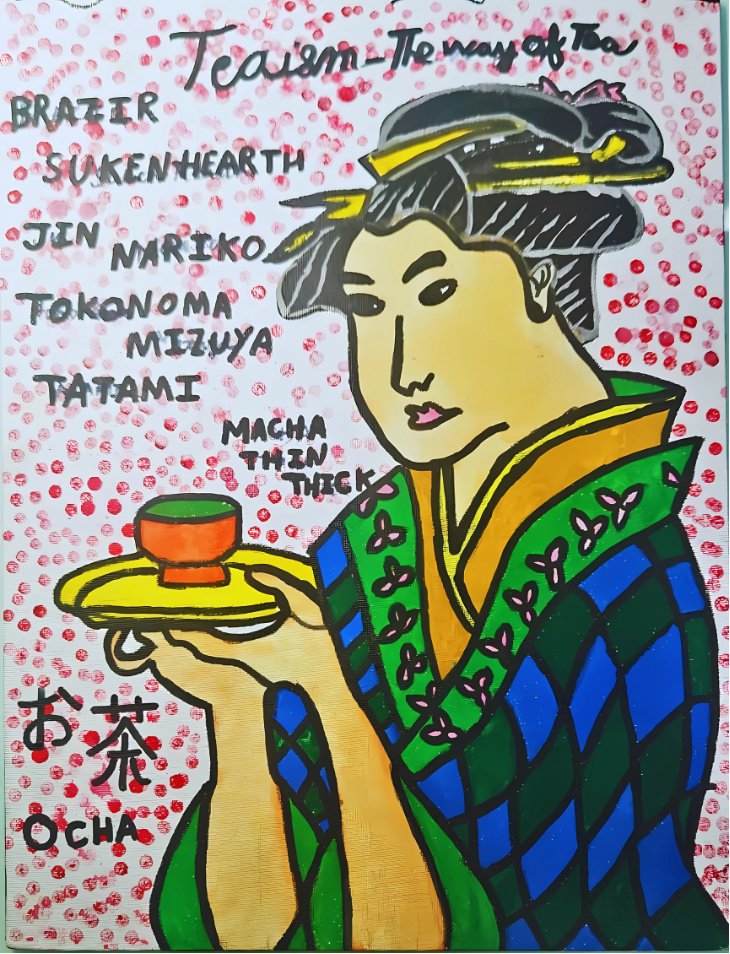 Teaism - The way of Tea
BRAZIR
SUKENHEARTH
JIN NARIKO
TOKONOMA
MIZUYA
TATAMI
MACHA
THIN
THICK
お茶
OCHA